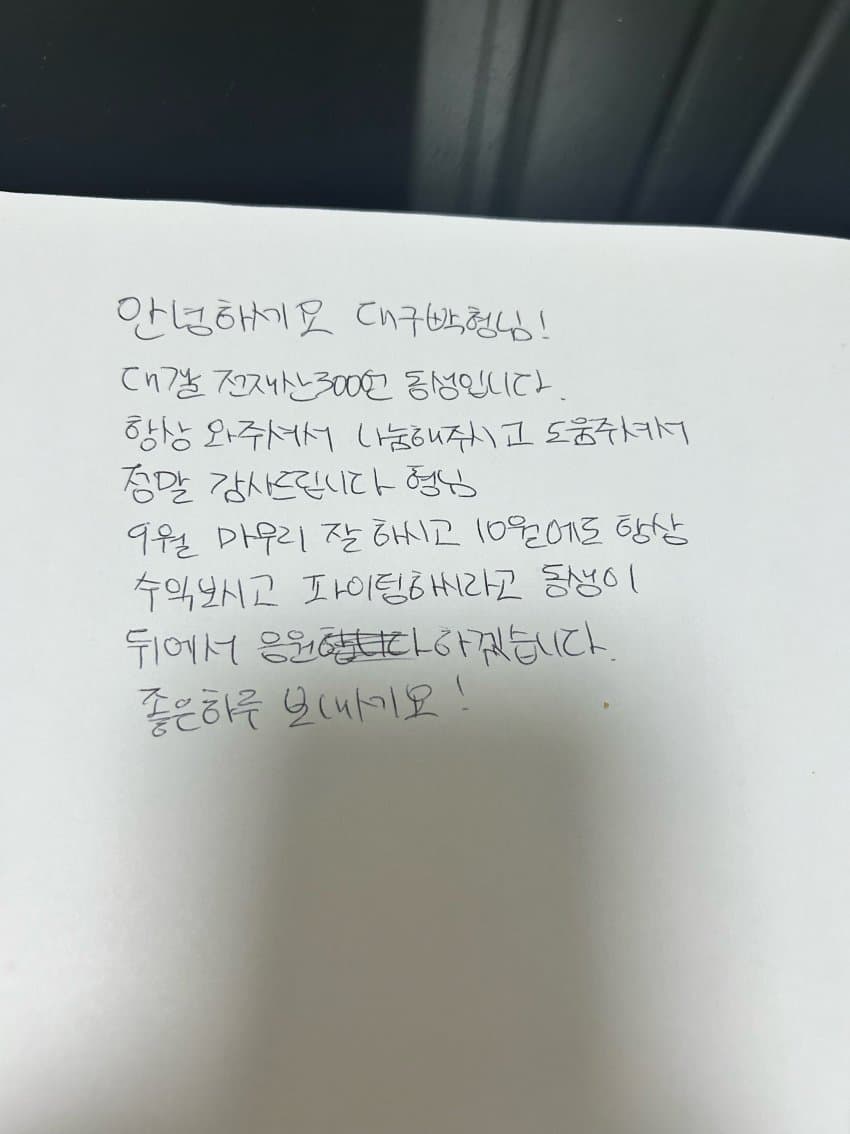 안녕하세요 대구박형님!
대갤 전재산300언 동생입니다.
항상 와주셔서 나눔해주시고 도움주셔서
정말 감사드립니다 형님
9월 마무리 잘하시고 10월에도 항상
수익보시고 파이팅하시라고 동생이
뒤에서 응원합니다하겠습니다.
좋은하루 보내세요!